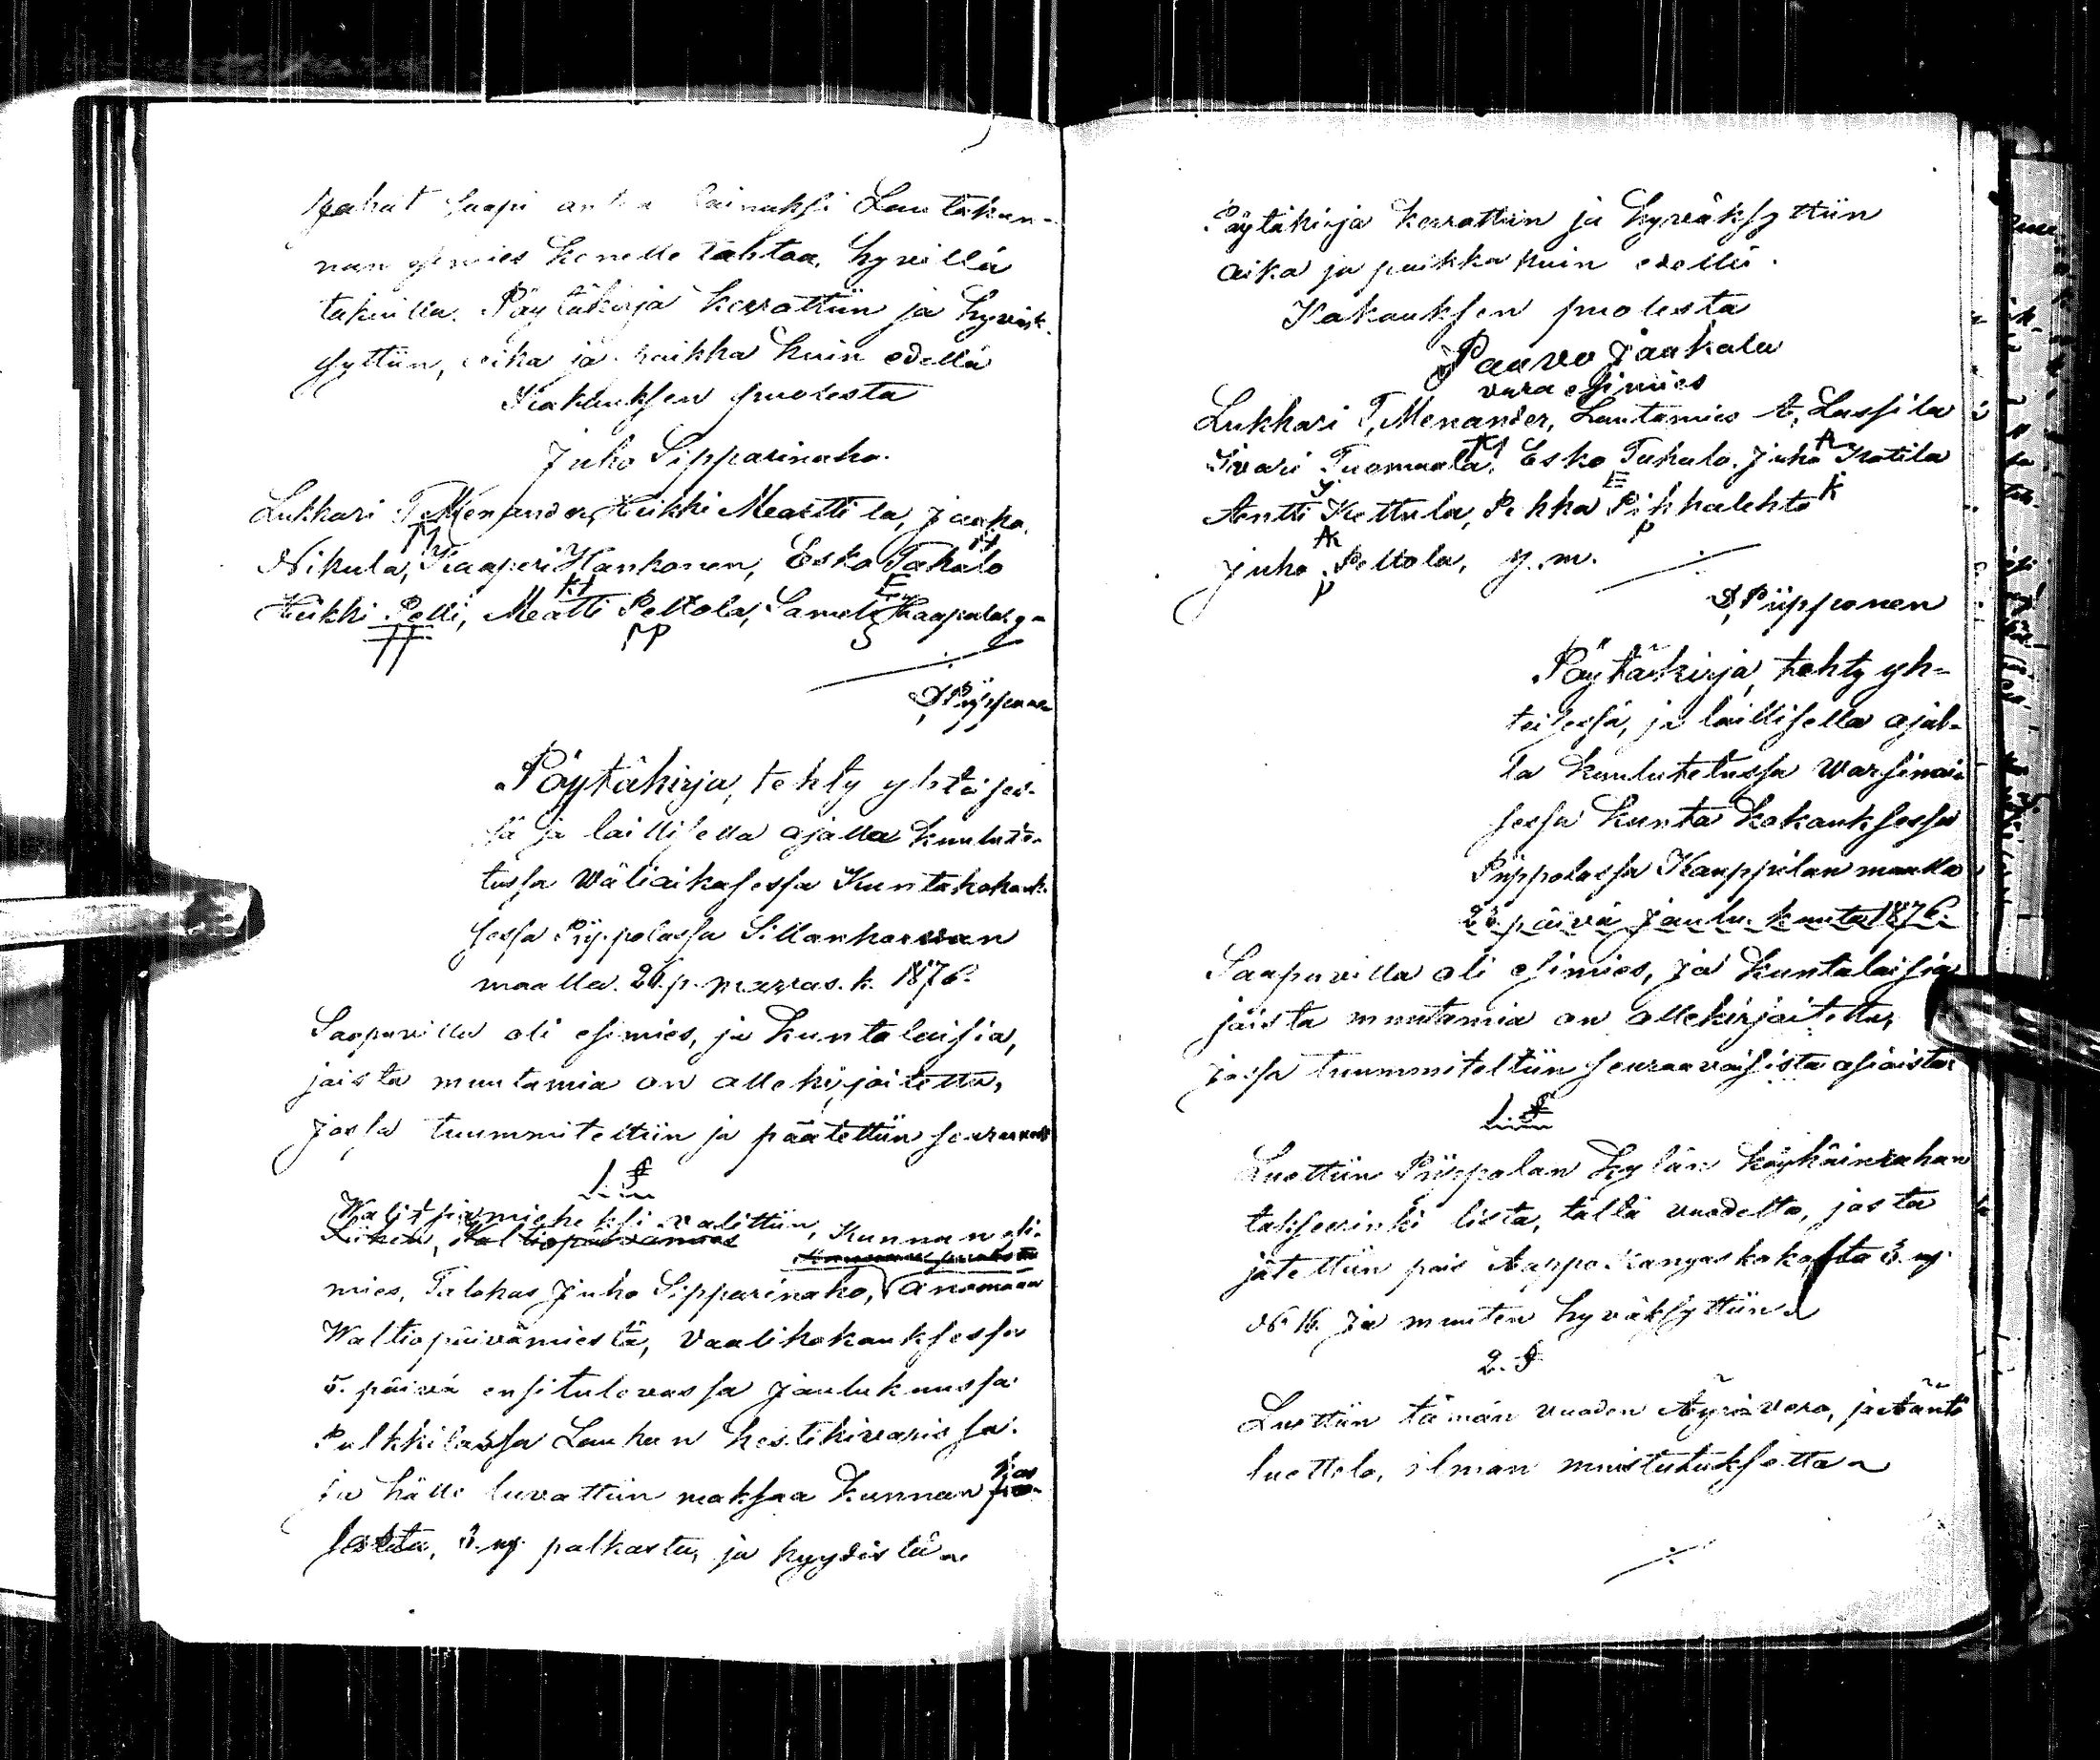 Rahat saapi antaa lainaksi Lautakun-
nan esimies kenelle tahtoo, hyvillä
takuilla. Pöytäkirja kerrottiin ja hyväk-
syttiin, aika ja paikka kuin edellä
Kokouksen puolesta
Juho Sipparinaho.
Lukkari T. Menander, Heikki Marttila, Jaako
Nikula, Kaaperi Hankonen, Esko Takalo
Heikki Pelli, Matti Peltola, Sameli Haapala y-
D, Piipponen
Pöytäkirja, tehty yhteises-
sä ja laillisella ajalla kuulute-
tussa Wäliaikasessa Kuntakokouk-
sessa Piippolassa Sillankorvan
maalla. 26. p. marras. k. 1876.
Saapuvilla oli esimies, ja kuntalaisia,
joista muutamia on allekirjoitettu,
jossa tuummiteltiin ja päätettiin seuraavat
1. §
Walitsiamieheksi valittiin, Kunnan esi-
mies, Talokas Juho Sipparinaho, anomaan
Waltiopäivämiestä, vaalikokouksessa
5. päivä ensitulevassa Joulukuussa
Pulkkilassa Lauhan kestikivarissa.
ja hälle luvattiin maksaa Kunnan
3. mf palkasta, ja kyydistä
Pöytäkirja kerrottiin ja hyväksyttiin
aika ja paikka kuin edellä.
Kokouksen puolesta
Paavo Jaakola
vara esimies
Lukkari T, Menander, Lautamies A, Lassila
Iivari Tuomaala, Esko Takalo. Juho Kotila
Antti Kettula, Pekka Pihkalehto
Juho Peltola, y. m.
D, Piipponen
Pöytäkirja, tehty yh-
teisessä, ja laillisella ajal-
la kuulutetussa Warsinai-
sessa Kunta kokouksessa
Piippolassa Kauppilan maalla
päivä Joulu. kuuta 1876.
Saapuvilla oli esimies, ja kuntalaisia
joista muutamia on allekirjoitettu,
jossa tuummiteltiin seuraavaisista asioista
1. §
Luettiin Piippolan kylän köyhäinrahan
takseerinki lista, tältä vuodelta, josta
jätettiin pois Aappo Kangaskokolta 3. mf.
N 16. ja muuten hyväksyttiin
2. §
Luettiin tämän vuoden Äyrivero, ja Ääntö
luettelo, ilman muistutuksetta